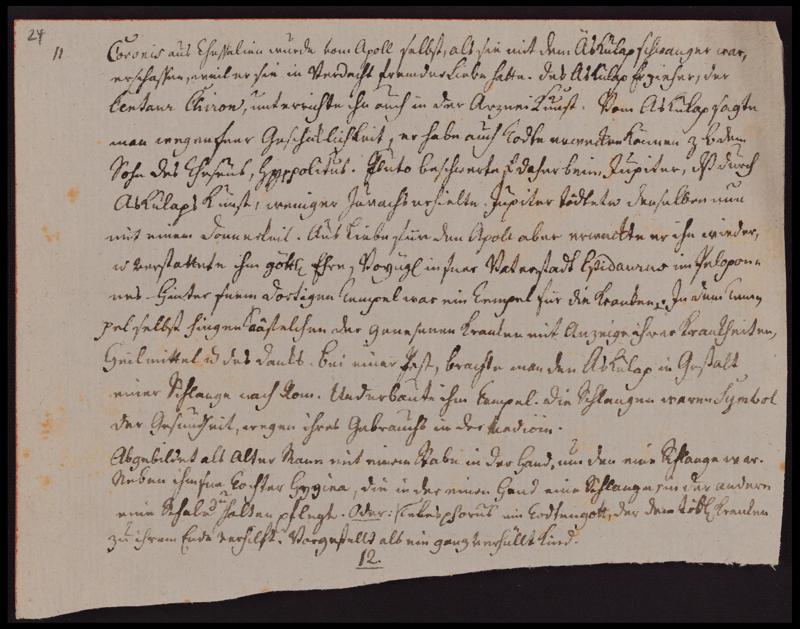 24
11
Coronis aus Thessalien wurde vom Apoll selbst, als sie mit dem Äskulap schwanger war,
erschossen, weil er sie in Verdacht fremder Liebe hatte. Des Äskulap Erzieher, der
Centaur Chiron, unterrichtete ihn auch in der Arzneikunst. Vom Äskulap sagte
man wegen sener Geschicklichkeit, er habe auch Todte erwecken können z b den
Sohn des Theseus, Hyppolitus. Pluto beschwerte s daher beim Jupiter, dß durch
Äskulaps Kunst, weniger Zuwachs erhielte. Jupiter tödtete denselben nun
mit einem Donnerkeil. Aus Liebe für den Apoll aber erweckte er ihn wieder,
u verstattete ihm göttl Ehre, Vorzügl in sener Vaterstadt Epidaurus im Pelopon=
nes Hinter senem dortigen Tempel war ein Tempel für die Kranken. In dem Tem
pel selbst hingen Täfelchen der genesenen Kranken mit Anzeige ihrer Krankheiten,
Heilmittel u des Danks. Bei einer Pest, brachte man den Äskulap in Gestalt
einer Schlange nach Rom. Und erbaute ihm Tempel. Die Schlangen waren Symbol
der Gesundheit, wegen ihres Gebrauchs in der Medicin.
Abgebildet als Alter Mann mit einem Stabe in der Hand, um den eine Schlange war.
Neben ihm sne Tochter Hygiea, die in der einen Hand eine Schlange, in der andern
eine Schale zu halten pflegt. Oder: Telesphorus ein Todtengott, der den tödtl Kranken
zu ihrem Ende verhilft. Vorgestellt als ein ganz verhüllt Kind.
12.